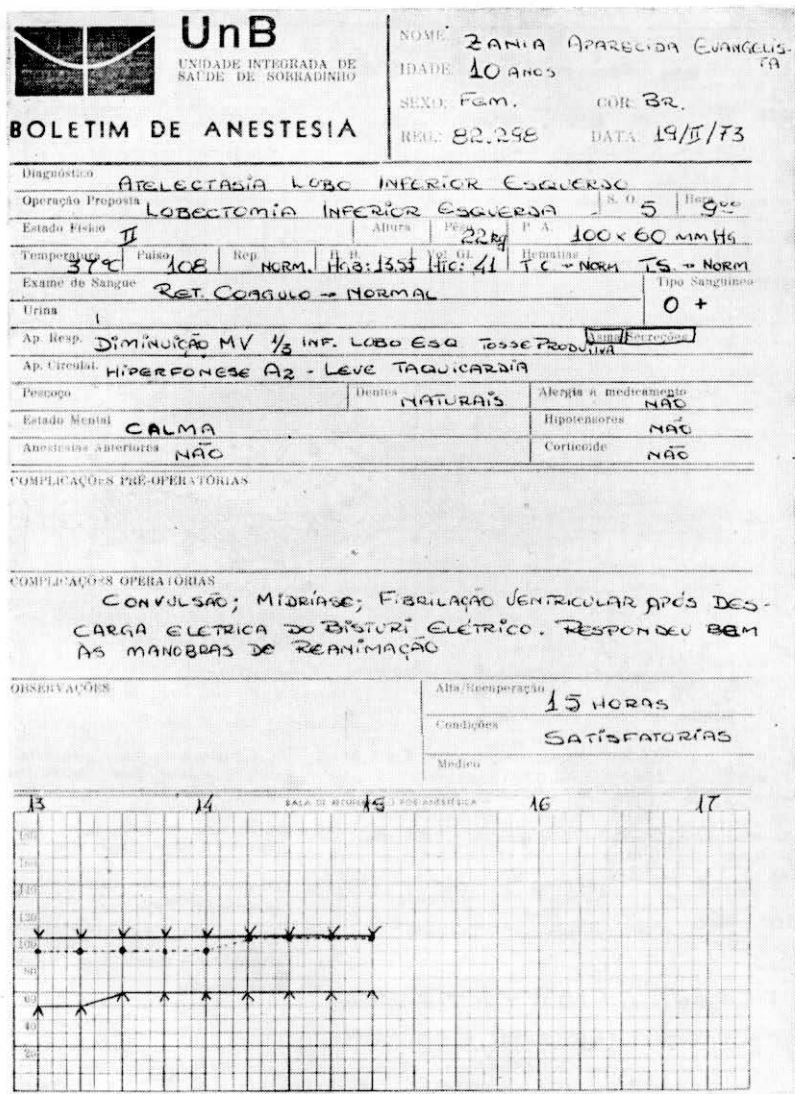 UnB
UNIDADE INTEGRADA DE
SAÚDE DE SOBRADINHO
BOLETIM DE ANESTESIA
NOME: ZANIA APARECIDA EVANGELIS-
TA
IDADE 10 ANOS
SEXO: FEM. CÔR: BR.
REG.: 82.298 DATA: 19/II/73
Diagnóstico ATELECTASIA LOBO INFERIOR ESQUERDO
Operação Proposta LOBECTOMIA INFERIOR ESQUERDA S. O. 5 Hora 900
Estado Físico II Altura Pêso 22 kg P. A. 100 x 60 MM HG
Temperatura 37°C Pulso 108 Rep. NORM. HGB: 13.55 Vol. Gl. HTC: 41 Hematias TC → NORM TS. → NORM
Exame de Sangue RET. COAGULO → NORMAL Tipo Sanguíneo
O +
Urina
Ap. Resp. DIMINUIÇÃO MV 1/3 INF. LOBO ESQ TOSSE PRODUTIVA Asma Secreções
Ap. Circulat. HIPERFONESE A2 - LEVE TAQUICARDIA
Pescoço Dentes NATURAIS Alergia a medicamento NÃO
Estado Mental CALMA Hipotensores NÃO
Anestesias Anteriores NÃO Corticoide NÃO
COMPLICAÇÕES PRÉ-OPERATÓRIAS
COMPLICAÇÕES OPERATÓRIAS
CONVULSÃO; MIDRÍASE; FIBRILAÇÃO VENTRICULAR APÓS DES-
CARGA ELETRICA DO BISTURI ELÉTRICO. RESPONDEU BEM
AS MANOBRAS DE REANIMAÇÃO
OBSERVAÇÕES Alta/Recuperação 15 HORAS
Condições SATISFATORIAS
Médico
SALA DE RECUPERAÇÃO POS-ANESTÉSICA
13 14 15 16 17
180
160
140
120
100
80
60
40
20